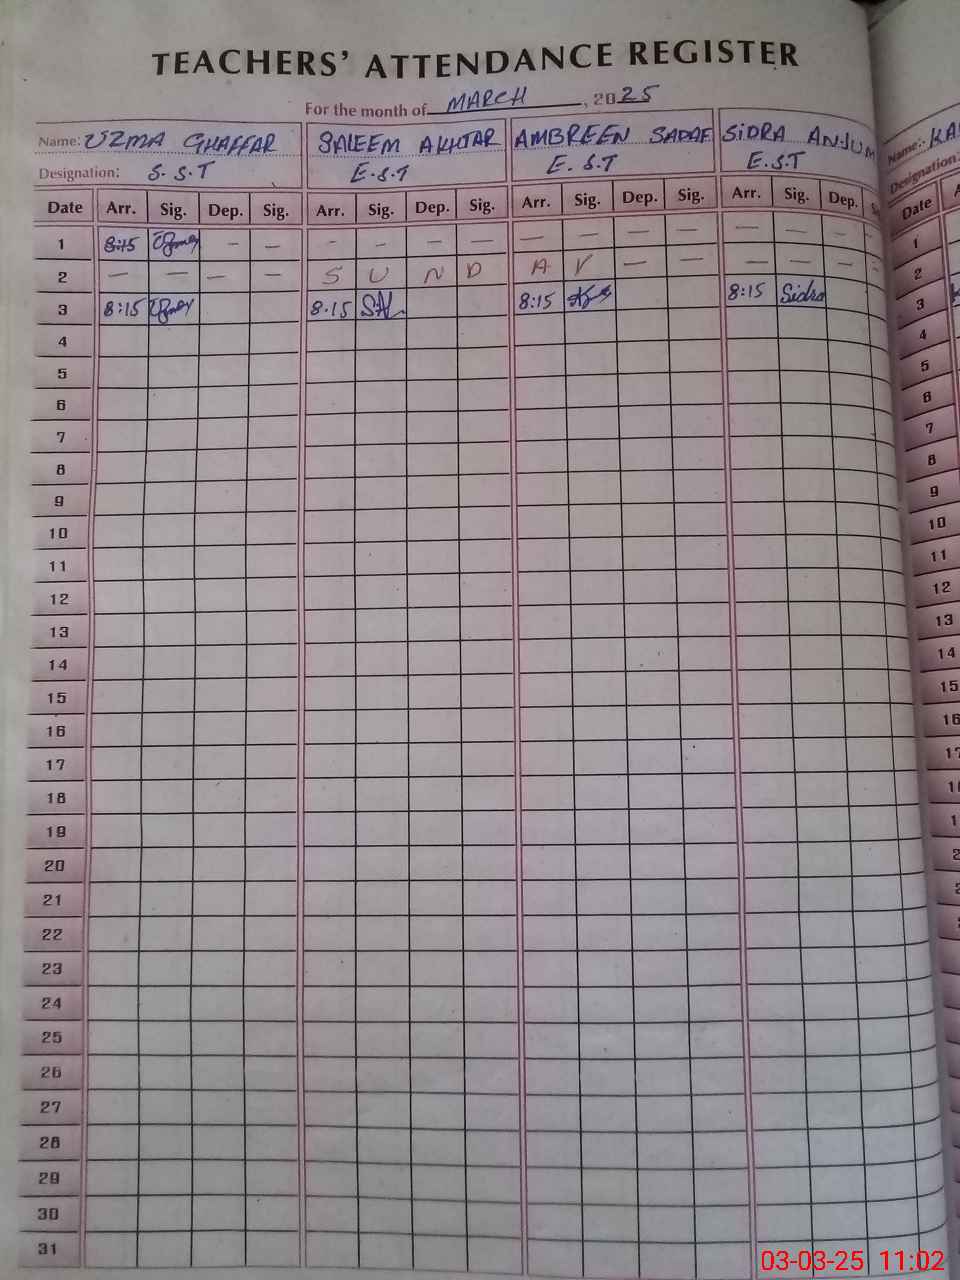 TEACHERS' ATTENDANCE REGISTER
For the month of MARCH, 2025
Name: UZMA GHAFFAR SALEEM AKHTAR AMBREEN SADAF SIDRA ANJUM Name:- KA
Designation: S.S.T E.S.T E.S.T E.S.T Designation:
Date Arr. Sig. Dep. Sig. Arr. Sig. Dep. Sig. Arr. Sig. Dep. Sig. Arr. Sig. Dep. S Date A
1 8:15 — — — — — — — — — — — — — 1
2 — — — — S U N D A Y — — — — — — 2
3 8:15 8.15 8:15 8:15 Sidra 3
4 4
5 5
6 6
7 7
8 8
9 9
10 10
11 11
12 12
13 13
14 14
15 15
16 16
17 17
18
19
20
21
22
23
24
25
26
27
28
29
30
31
03-03-25 11:02